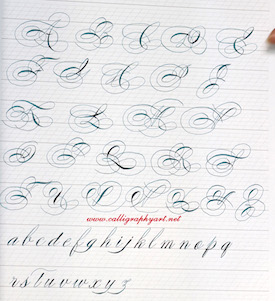 A B C D E
F G H I J
K L M N
O P Q R S
T U V W X Y Z
www.calligraphyart.net
a b c d e f g h i j k l m n o p q
r s t u v w x y z